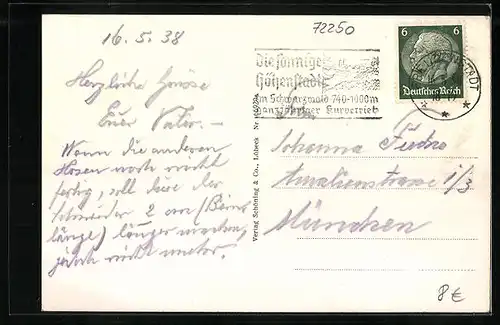 16. 5. 38
72250
Herzliche Grüsse
Euer Vater. —
Wenn die anderen
Hosen noch nicht
fertig, soll sie der
Schneider 2 cm (Bein
länge) länger machen,
jedoch nicht weiter.
die sonnige
Höhenstadt
im Schwarzwald 740-1000m
Ganzjähriger Kurbetrieb
6 6
Deutsches Reich
Verlag Schöning & Co., Lübeck
Johanna
Amalienstrasse 1/3
München
8€